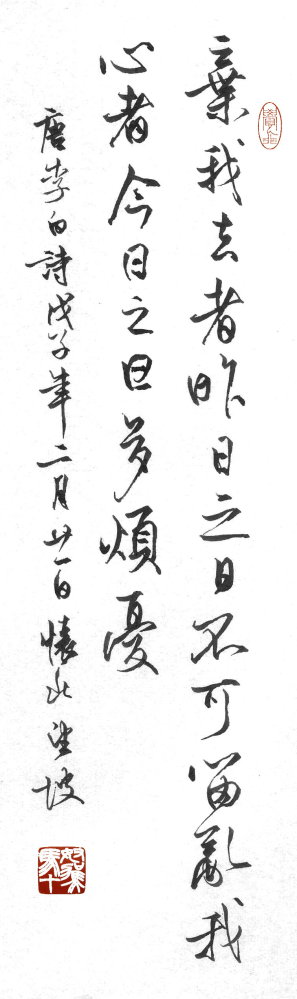 棄我去者昨日之日不可留亂我
心者今日之日多煩憂
唐李白詩戊子年二月廿一日懷北望坡